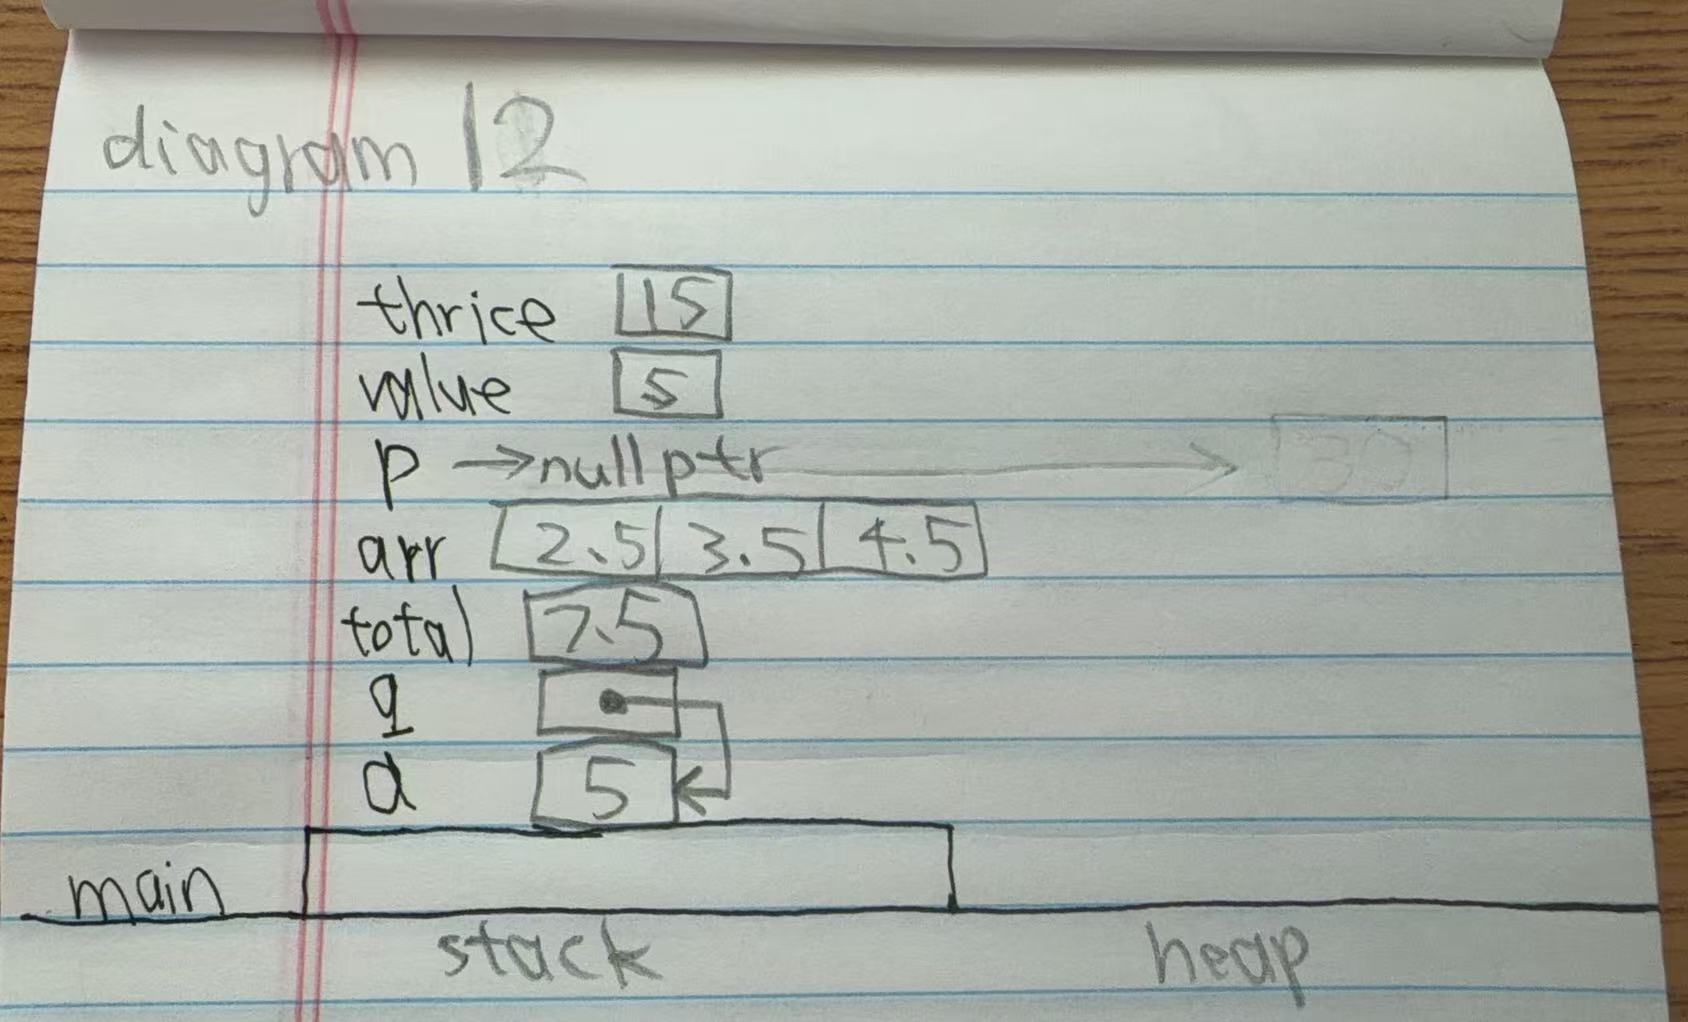 diagram 12
thrice 15
value 5
p →nullptr 30
arr 2.5 3.5 4.5
total 7.5
q
a 5
main
stack heap